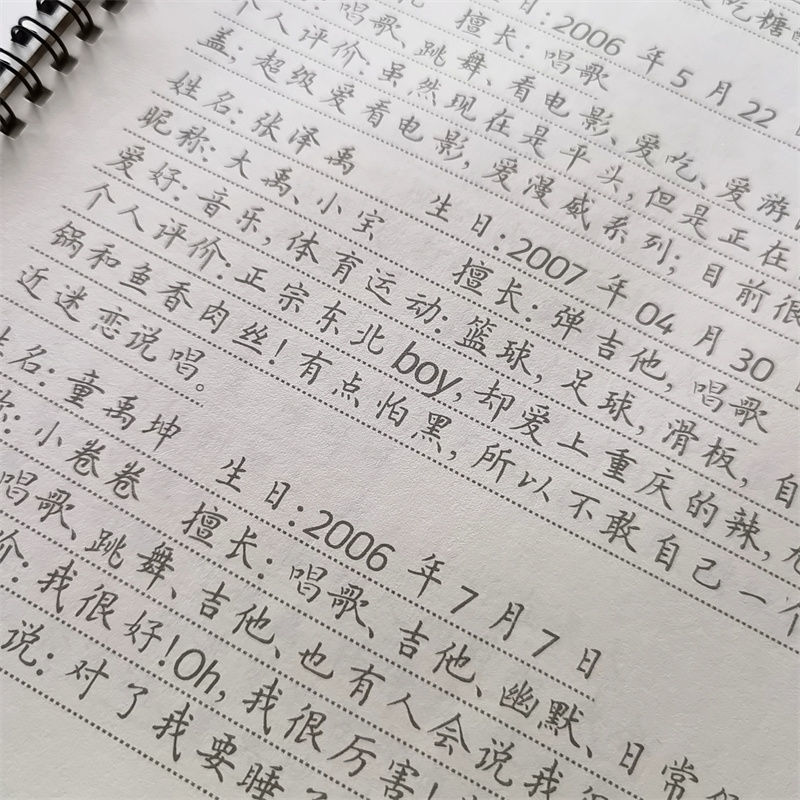 日: 2006 年 5 月 22
爱吃糖
唱歌、跳舞、看电影、爱吃、爱游
擅长: 唱歌
个人评价: 虽然现在是平头, 但是正在
盖; 超级爱看电影, 爱漫威系列; 目前很
姓名: 张泽禹 生日: 2007 年 04 月 30
昵称: 大禹、小宝 擅长: 弹吉他, 唱歌
爱好: 音乐, 体育运动: 篮球, 足球, 滑板, 自
个人评价: 正宗东北 boy, 却爱上重庆的辣, 尤
锅和鱼香肉丝! 有点怕黑, 所以不敢自己一个
近迷恋说唱。
姓名: 童禹坤 生日: 2006 年 7 月 7 日
称: 小卷卷 擅长: 唱歌、吉他、幽默、日常
唱歌、跳舞、吉他、也有人会说我
价: 我很好! Oh, 我很厉害!
说: 对了我要睡